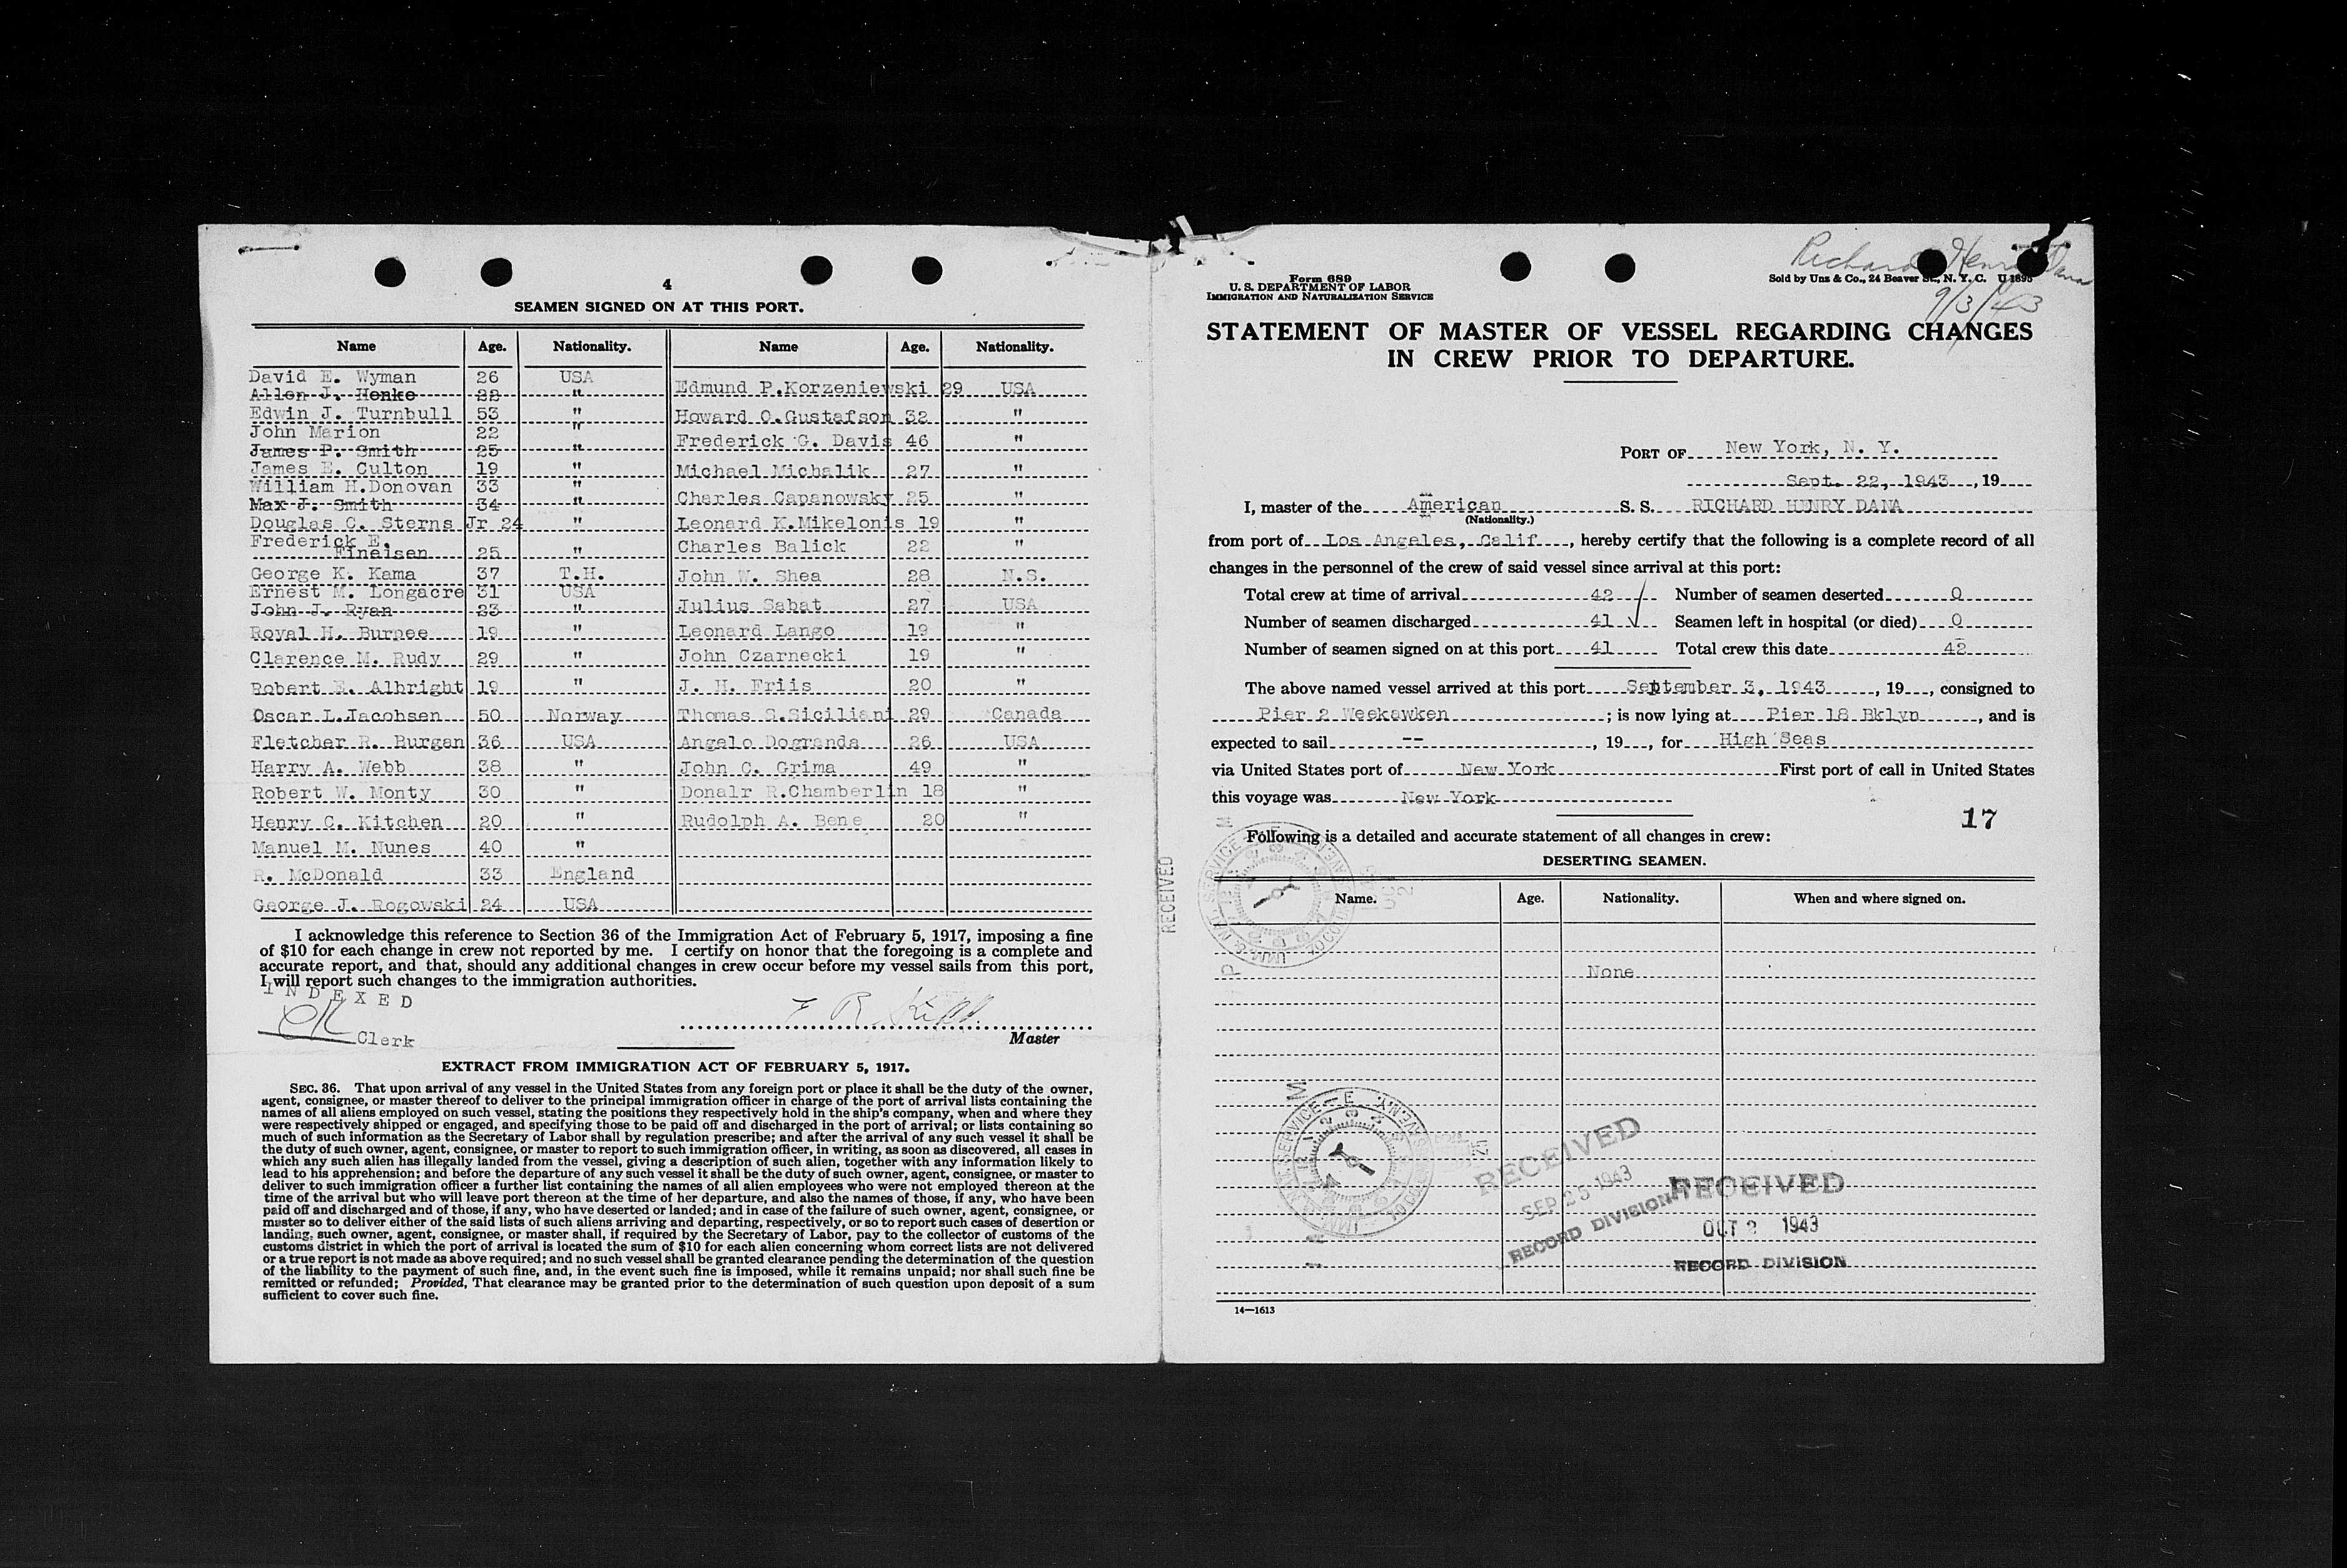 4
SEAMEN SIGNED ON AT THIS PORT.
Name Age. Nationality. Name Age. Nationality.
David E. Wyman 26 USA Edmund P.Korzeniewski 29 USA
Allen J. Henke 22 " Howard O.Gustafson 32 "
Edwin J. Turnbull 53 " Frederick G. Davis 46 "
John Marion 22 " Michael Michalik 27 "
James P. Smith 25 " Charles Capanowsky 25 "
James E. Culton 19 " Leonard K.Mikelonis 19 "
William H.Donovan 33 " Charles Balick 22 "
Max J. Smith 34 " John W. Shea 28 N.S.
Douglas C. Sterns Jr 24 " Julius Sabat 27 USA
Frederick E.
Fineisen 25 " Leonard Lango 19 "
George K. Kama 37 T.H. John Czarnecki 19 "
Ernest M. Longacre 31 USA J. H. Friis 20 "
John J. Ryan 23 " Thomas S.Siciliani 29 Canada
Royal H. Burnee 19 " Angelo Dogranda 26 USA
Clarence M. Rudy 29 " John C. Grima 49 "
Robert E. Albright 19 " Donalr R.Chamberlin 18 "
Oscar L.Jacobsen 50 Norway Rudolph A. Bene 20 "
Fletcher R. Burgan 36 USA
Harry A. Webb 38 "
Robert W. Monty 30 "
Henry C. Kitchen 20 "
Manuel M. Nunes 40 "
R. McDonald 33 England
George J. Rogowski 24 USA
I acknowledge this reference to Section 36 of the Immigration Act of February 5, 1917, imposing a fine
of $10 for each change in crew not reported by me. I certify on honor that the foregoing is a complete and
accurate report, and that, should any additional changes in crew occur before my vessel sails from this port,
I will report such changes to the immigration authorities.
INDEXED
Clerk
F R
Master
EXTRACT FROM IMMIGRATION ACT OF FEBRUARY 5, 1917.
SEC. 36. That upon arrival of any vessel in the United States from any foreign port or place it shall be the duty of the owner,
agent, consignee, or master thereof to deliver to the principal immigration officer in charge of the port of arrival lists containing the
names of all aliens employed on such vessel, stating the positions they respectively hold in the ship's company, when and where they
were respectively shipped or engaged, and specifying those to be paid off and discharged in the port of arrival; or lists containing so
much of such information as the Secretary of Labor shall by regulation prescribe; and after the arrival of any such vessel it shall be
the duty of such owner, agent, consignee, or master to report to such immigration officer, in writing, as soon as discovered, all cases in
which any such alien has illegally landed from the vessel, giving a description of such alien, together with any information likely to
lead to his apprehension; and before the departure of any such vessel it shall be the duty of such owner, agent, consignee, or master to
deliver to such immigration officer a further list containing the names of all alien employees who were not employed thereon at the
time of the arrival but who will leave port thereon at the time of her departure, and also the names of those, if any, who have been
paid off and discharged and of those, if any, who have deserted or landed; and in case of the failure of such owner, agent, consignee, or
master so to deliver either of the said lists of such aliens arriving and departing, respectively, or so to report such cases of desertion or
landing, such owner, agent, consignee, or master shall, if required by the Secretary of Labor, pay to the collector of customs of the
customs district in which the port of arrival is located the sum of $10 for each alien concerning whom correct lists are not delivered
or a true report is not made as above required; and no such vessel shall be granted clearance pending the determination of the question
of the liability to the payment of such fine, and, in the event such fine is imposed, while it remains unpaid; nor shall such fine be
remitted or refunded; Provided, That clearance may be granted prior to the determination of such question upon deposit of a sum
sufficient to cover such fine.
Richard Henry Dana
9/3/43
Form 689
U. S. DEPARTMENT OF LABOR
IMMIGRATION AND NATURALIZATION SERVICE
Sold by Unz & Co., 24 Beaver St., N. Y. C. U 1895
STATEMENT OF MASTER OF VESSEL REGARDING CHANGES
IN CREW PRIOR TO DEPARTURE.
PORT OF New York, N. Y.
Sept. 22, 1943, 19
I, master of the American S. S. RICHARD HENRY DANA
(Nationality.)
from port of Los Angeles, Calif, hereby certify that the following is a complete record of all
changes in the personnel of the crew of said vessel since arrival at this port:
Total crew at time of arrival 42 Number of seamen deserted 0
Number of seamen discharged 41 Seamen left in hospital (or died) 0
Number of seamen signed on at this port 41 Total crew this date 42
The above named vessel arrived at this port September 3, 1943, 19, consigned to
Pier 2 Weekawken; is now lying at Pier 18 Bklyn, and is
expected to sail --, 19, for High Seas
via United States port of New York First port of call in United States
this voyage was New York
17
Following is a detailed and accurate statement of all changes in crew:
DESERTING SEAMEN.
RECEIVED
Name. Age. Nationality. When and where signed on.
None
RECEIVED
SEP 25 1943
RECORD DIVISION
RECEIVED
OCT 2 1943
RECORD DIVISION
14—1613